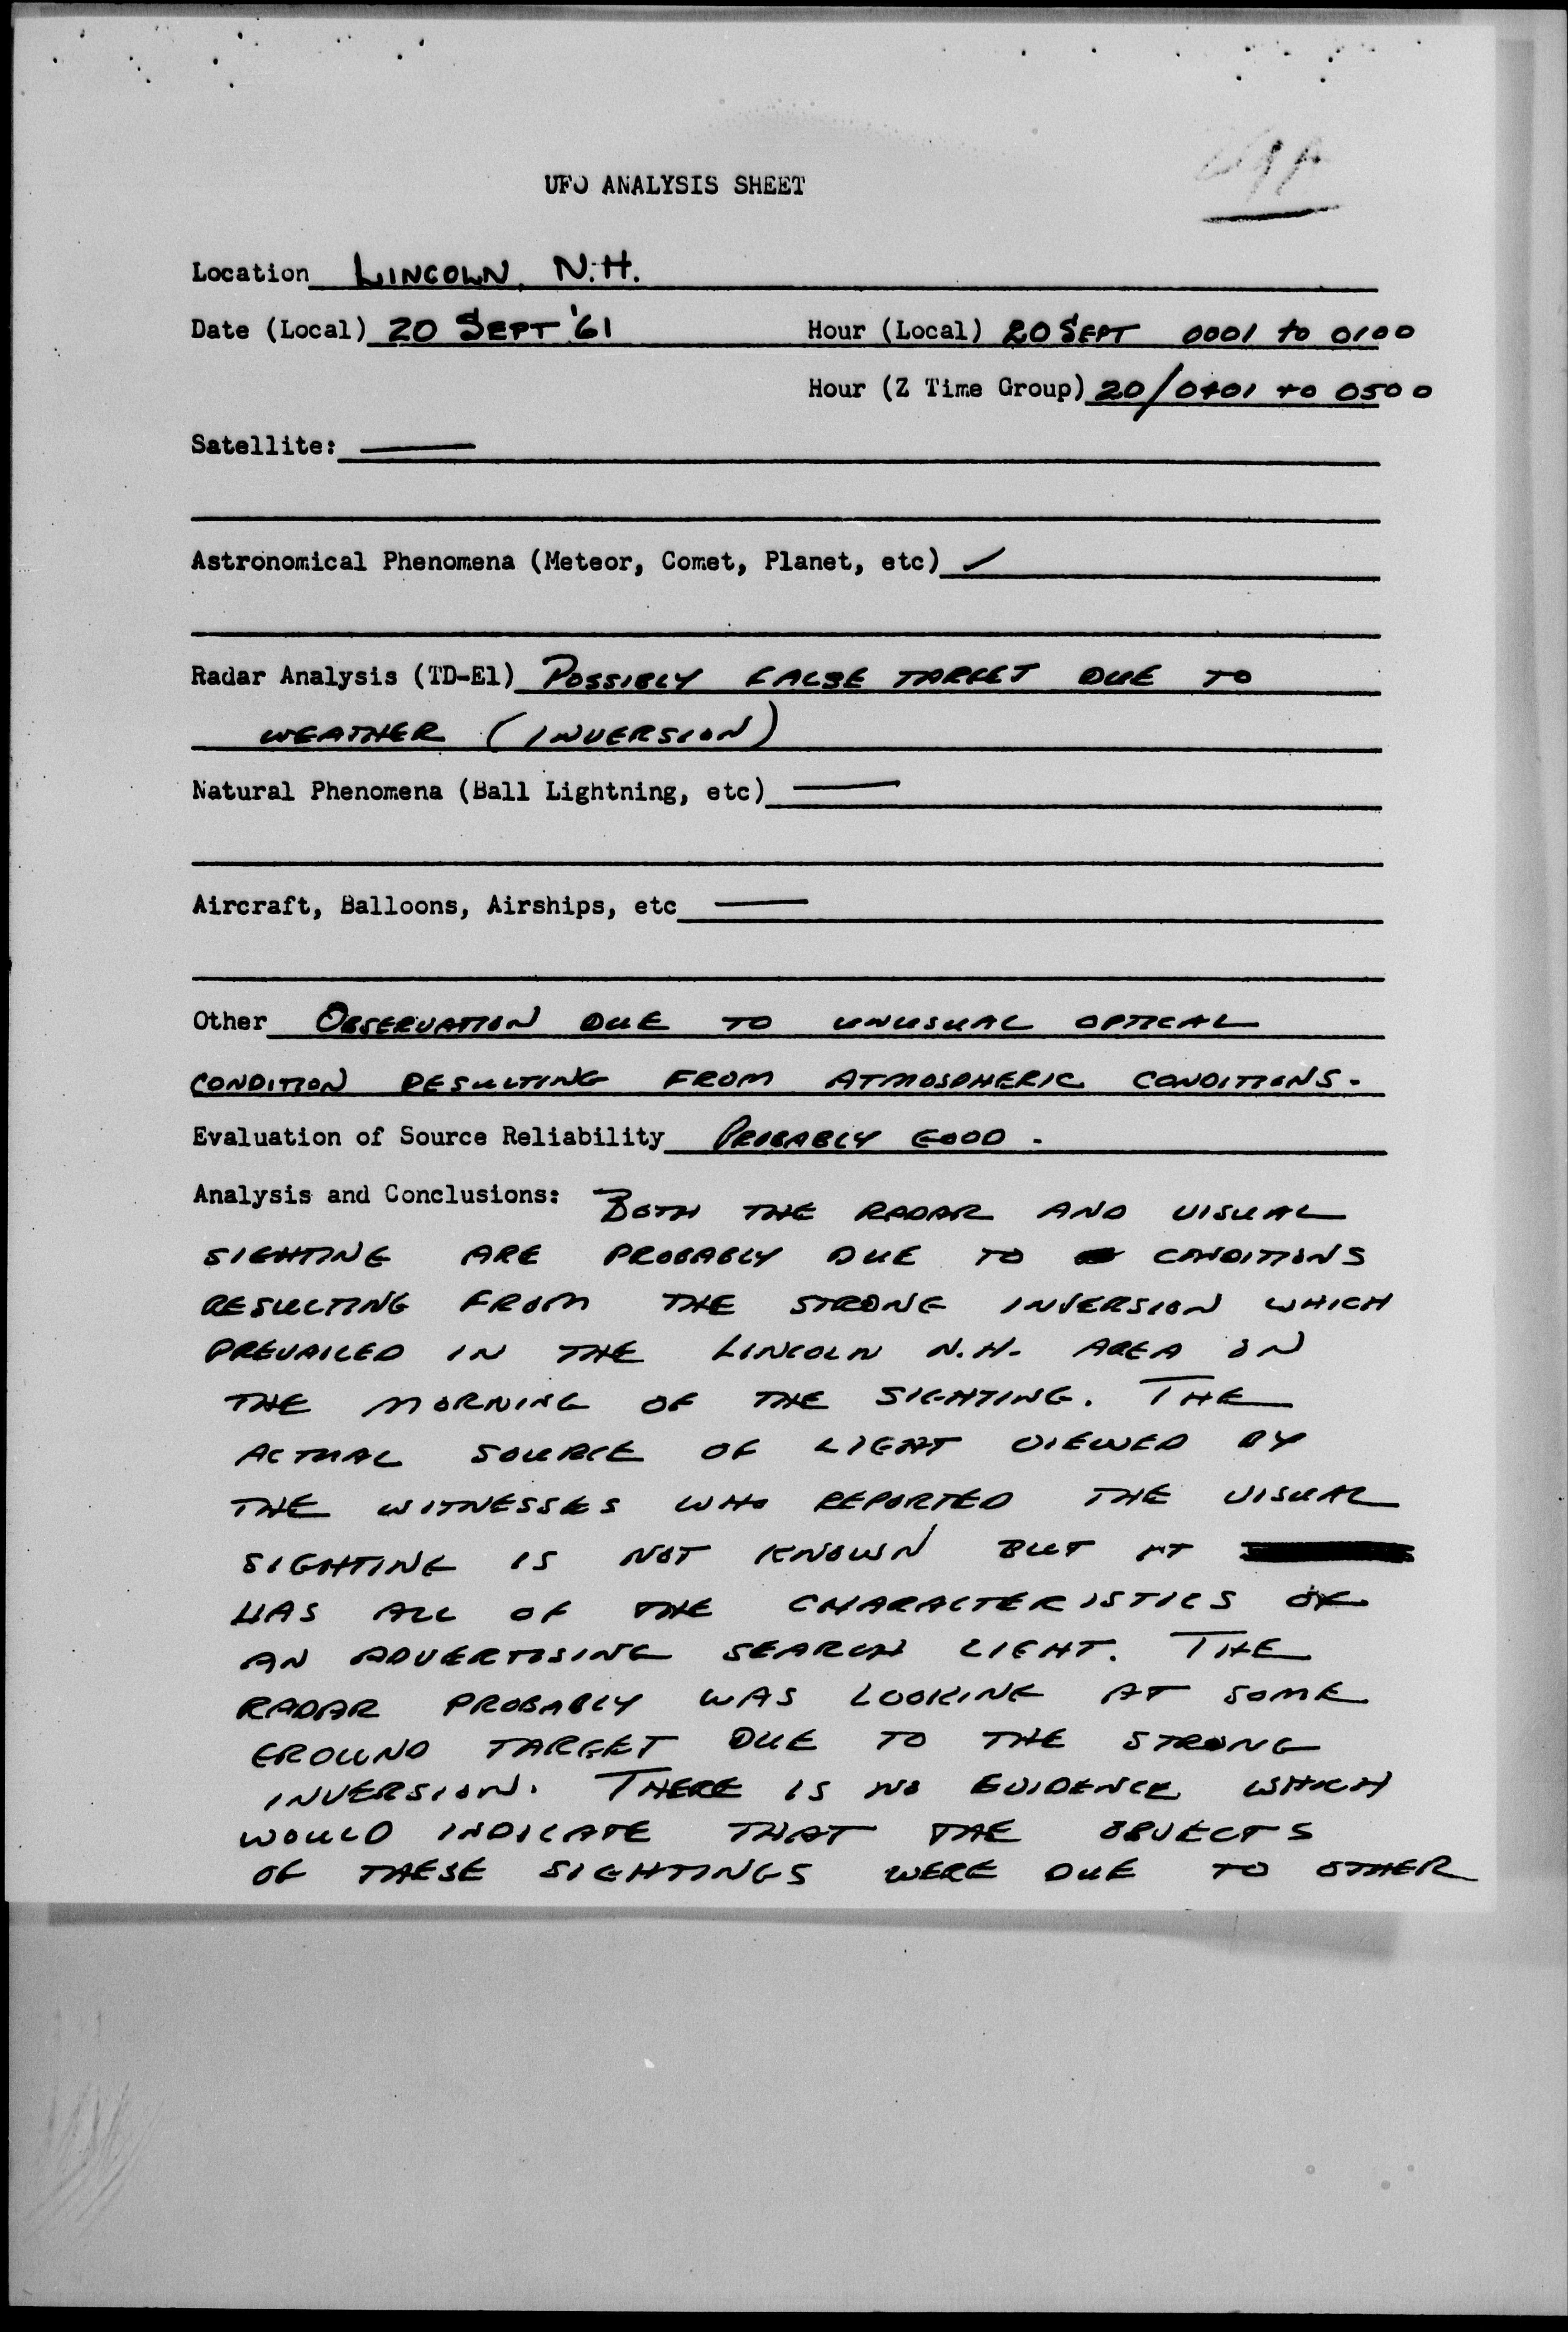 UFO ANALYSIS SHEET
Location LINCOLN, N.H.
Date (Local) 20 SEPT '61 Hour (Local) 20 SEPT 0001 to 0100
Hour (Z Time Group) 20/0401 to 0500
Satellite: —
Astronomical Phenomena (Meteor, Comet, Planet, etc) ✓
Radar Analysis (TD-E1) POSSIBLY FALSE TARGET DUE TO
WEATHER (INVERSION)
Natural Phenomena (Ball Lightning, etc) —
Aircraft, Balloons, Airships, etc —
Other OBSERVATION DUE TO UNUSUAL OPTICAL
CONDITION RESULTING FROM ATMOSPHERIC CONDITIONS.
Evaluation of Source Reliability PROBABLY GOOD.
Analysis and Conclusions: BOTH THE RADAR AND VISUAL
SIGHTING ARE PROBABLY DUE TO CONDITIONS
RESULTING FROM THE STRONG INVERSION WHICH
PREVAILED IN THE LINCOLN N.H. AREA ON
THE MORNING OF THE SIGHTING. THE
ACTUAL SOURCE OF LIGHT VIEWED BY
THE WITNESSES WHO REPORTED THE VISUAL
SIGHTING IS NOT KNOWN BUT IT
HAS ALL OF THE CHARACTERISTICS OF
AN ADVERTISING SEARCH LIGHT. THE
RADAR PROBABLY WAS LOOKING AT SOME
GROUND TARGET DUE TO THE STRONG
INVERSION. THERE IS NO EVIDENCE WHICH
WOULD INDICATE THAT THE OBJECTS
OF THESE SIGHTINGS WERE DUE TO OTHER